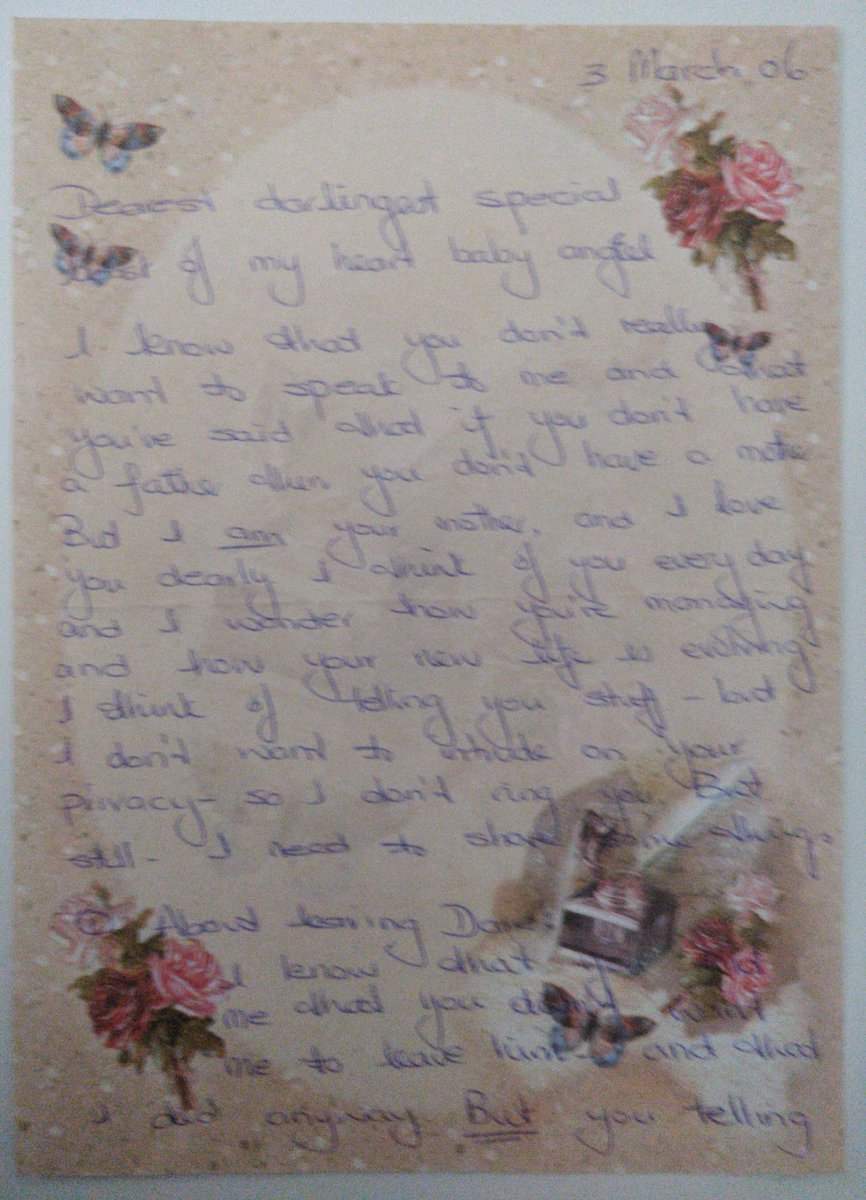 3 March 06
Dearest darlingest special
of my heart baby angel
I know that you don't really
want to speak to me and that
you've said that if you don't have
a father then you don't have a mother
But I am your mother, and I love
you dearly. I think of you every day
and I wonder how you're managing
and how your new life is evolving
I think of telling you stuff - but
I don't want to intrude on your
privacy - so I don't ring you. But
still - I need to share some things.
About leaving
I know that
me that you didn't want
me to leave him - and that
I did anyway. But you telling